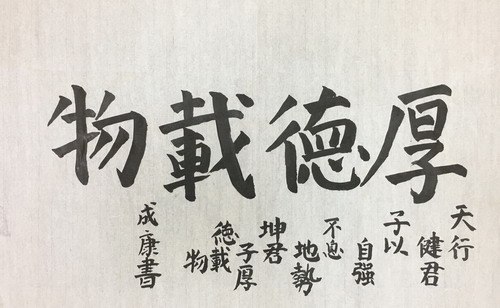 厚德載物
天行
健君
子以
自强
不息
地勢
坤君
子厚
德載
物
成康書